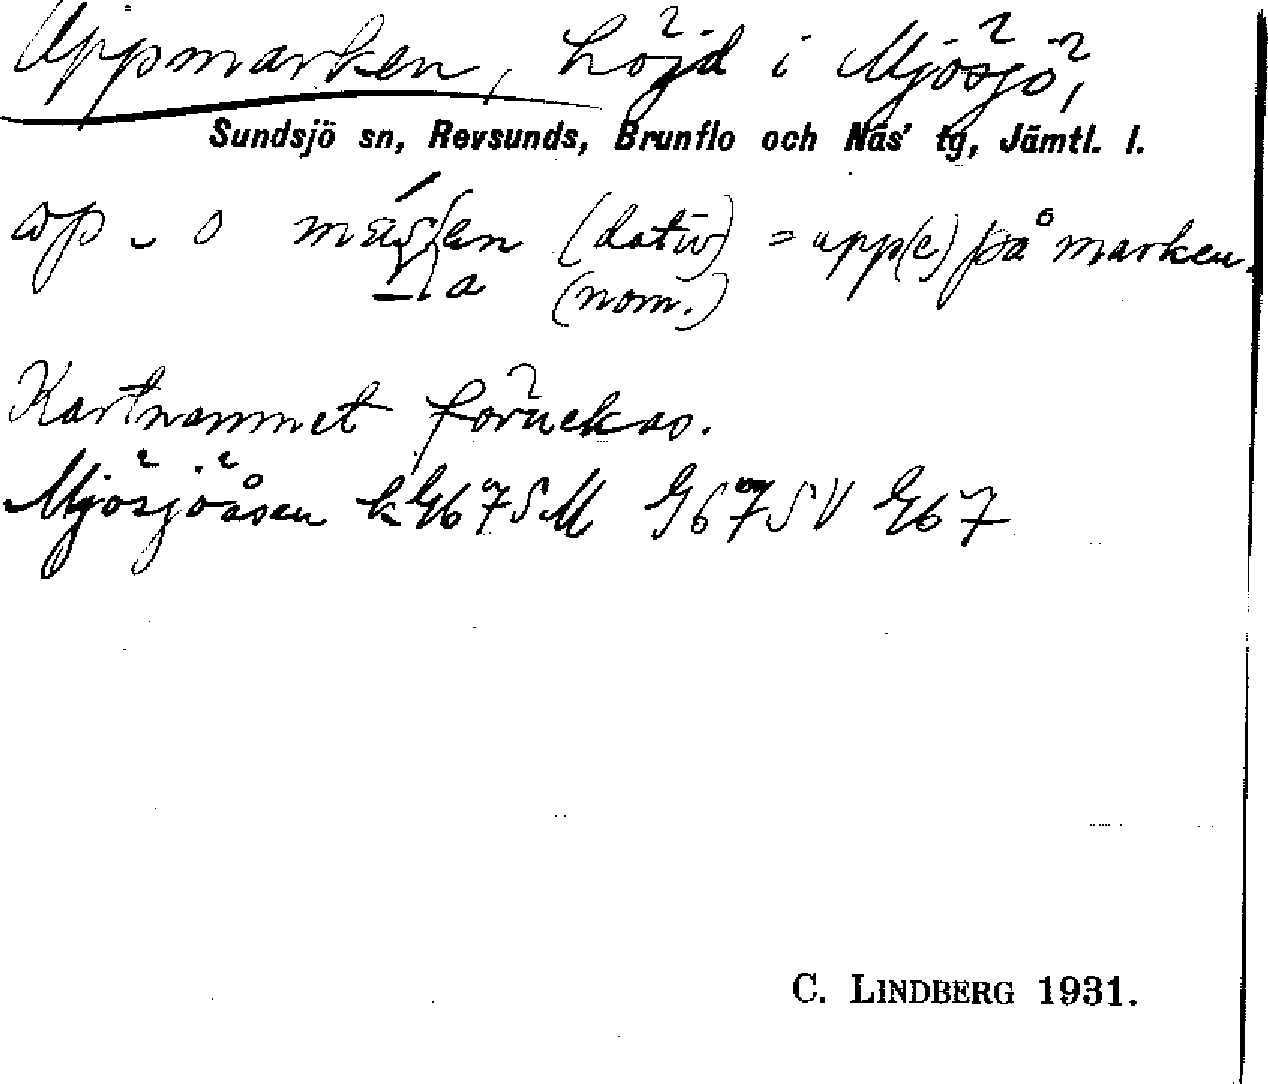 Uppmarken, höjd i Mjösjö,
Sundsjö sn, Revsunds, Brunflo och Näs' tg, Jämtl. l.
op - o (dativ) = upp(e) på marken.
a (nom.)
Kartnamnet
Mjösjöåsen G67SV G67
C. LINDBERG 1931.